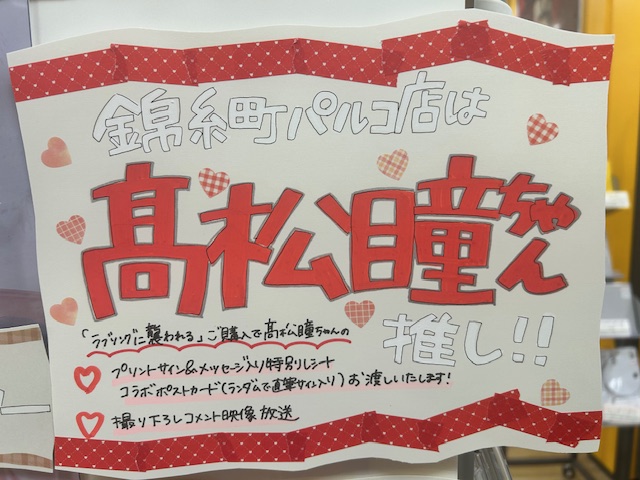 錦糸町パルコ店は
髙松瞳ちゃん
推し!!
「ラブソングに襲われる」ご購入で髙松瞳ちゃんの
プリントサイン&メッセージ入り特別レシート
コラボポストカード(ランダムで直筆サイン入り)お渡しいたします!
撮り下ろしコメント映像放送